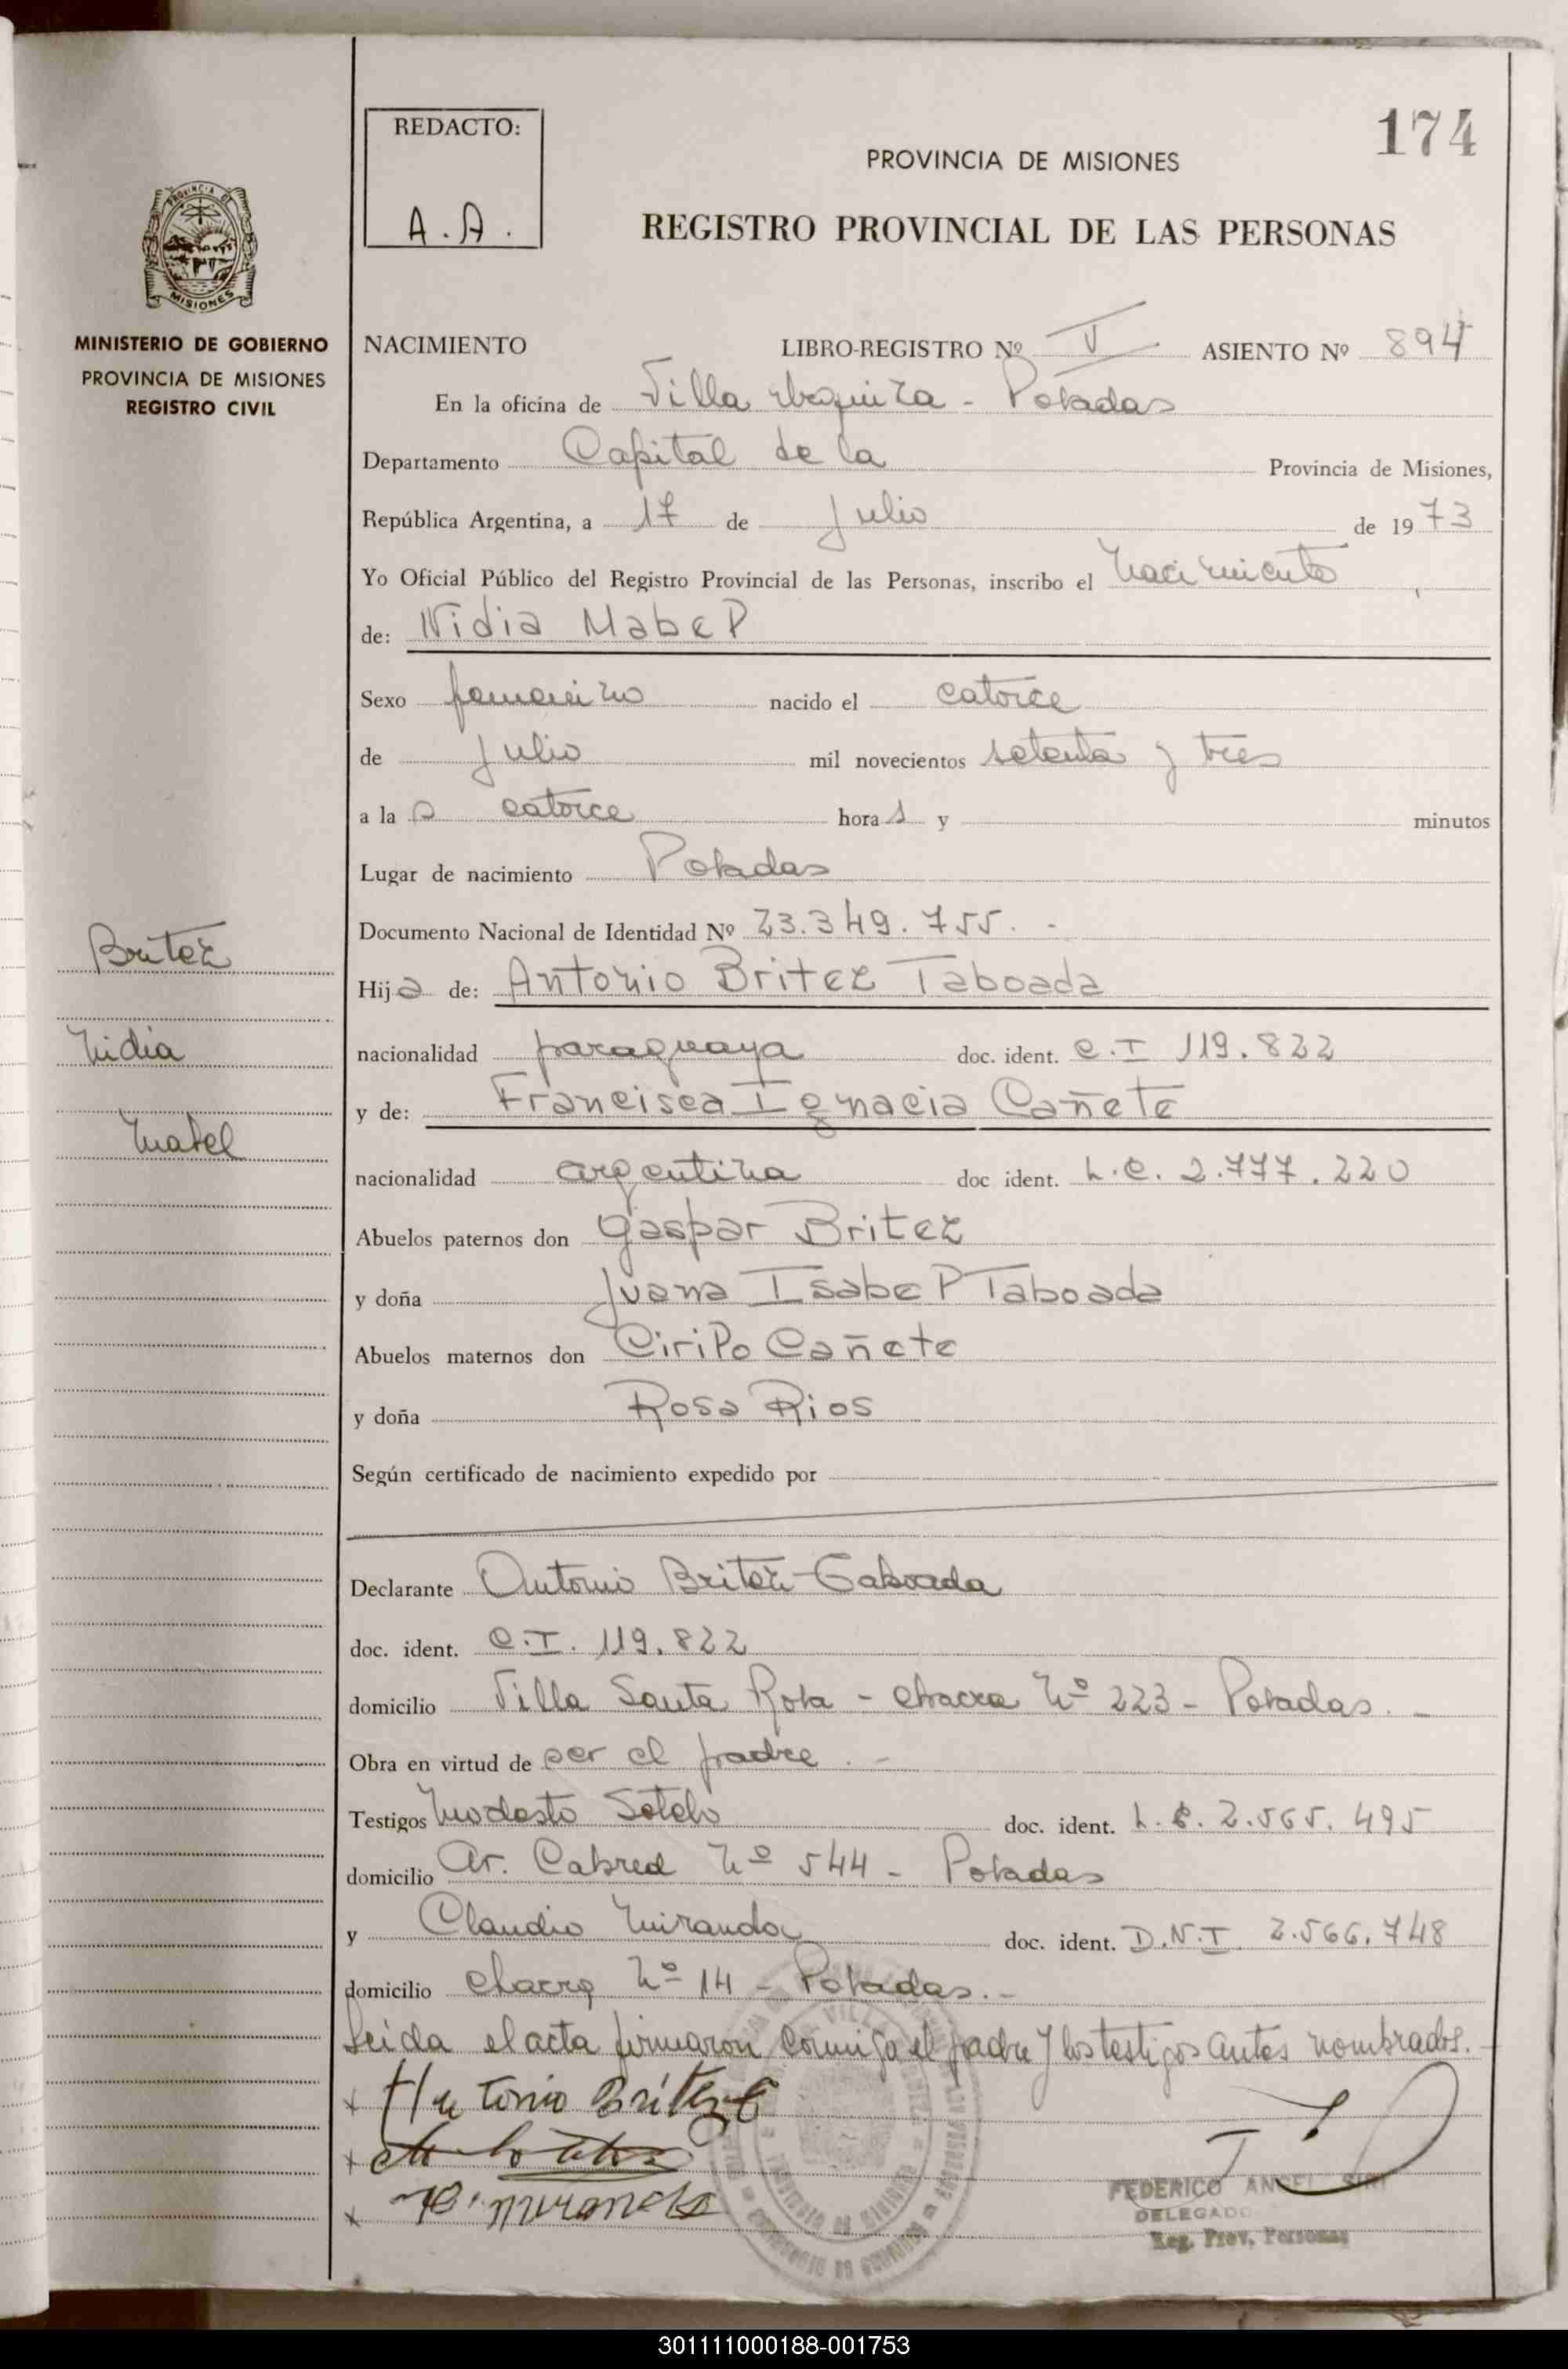 174
REDACTO:
A. A.
PROVINCIA DE MISIONES
REGISTRO PROVINCIAL DE LAS PERSONAS
PROVINCIA DE
MISIONES
MINISTERIO DE GOBIERNO
PROVINCIA DE MISIONES
REGISTRO CIVIL
NACIMIENTO LIBRO-REGISTRO Nº V ASIENTO Nº 894
En la oficina de Villa Urquiza - Posadas
Departamento Capital de la Provincia de Misiones,
República Argentina, a 17 de Julio de 1973
Yo Oficial Público del Registro Provincial de las Personas, inscribo el nacimiento
de: Nidia Mabel
Sexo femenino nacido el catorce
de Julio mil novecientos setenta y tres
a la s catorce hora s y minutos
Lugar de nacimiento Posadas
Documento Nacional de Identidad Nº 23.349.755. -
Britez
Hija de: Antonio Britez Taboada
Nidia
nacionalidad paraguaya doc. ident. C.I 119.822
y de: Francisca Ignacia Cañete
Mabel
nacionalidad argentina doc ident. L.C. 2.777.220
Abuelos paternos don Gaspar Britez
y doña Juana Isabel Taboada
Abuelos maternos don Cirilo Cañete
y doña Rosa Rios
Según certificado de nacimiento expedido por
Declarante Antonio Britez Taboada
doc. ident. C.I. 119.822
domicilio Villa Santa Rosa - chacra Nº 223 - Posadas. -
Obra en virtud de ser el padre. -
Testigos Modesto Sotelo doc. ident. L.E. 2.565.495
domicilio Av. Cabred Nº 544 - Posadas
y Claudio Miranda doc. ident. D.N.I. 2.566.748
domicilio chacra Nº 14 - Posadas. -
Leida el acta firmaron conmigo el padre y los testigos antes nombrados. -
x Antonio Britez T
x
x C. Miranda
FEDERICO ANGEL SIRI
DELEGADO
Reg. Prov. Personas
301111000188-001753